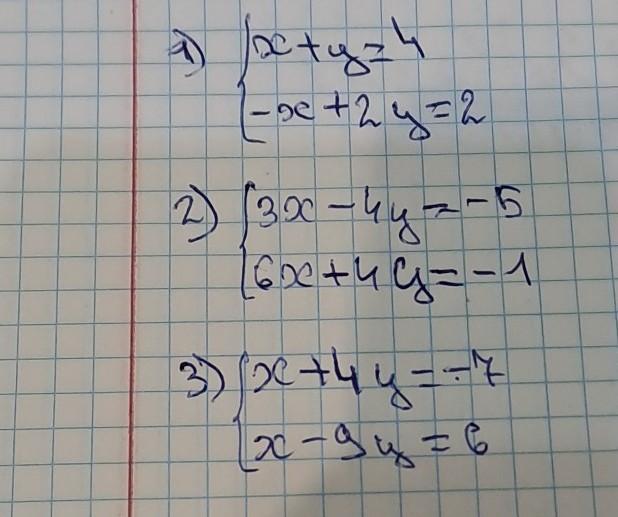 1) { x + y = 4
-x + 2y = 2
2) { 3x - 4y = -5
6x + 4y = -1
3) { x + 4y = -7
x - 9y = 6